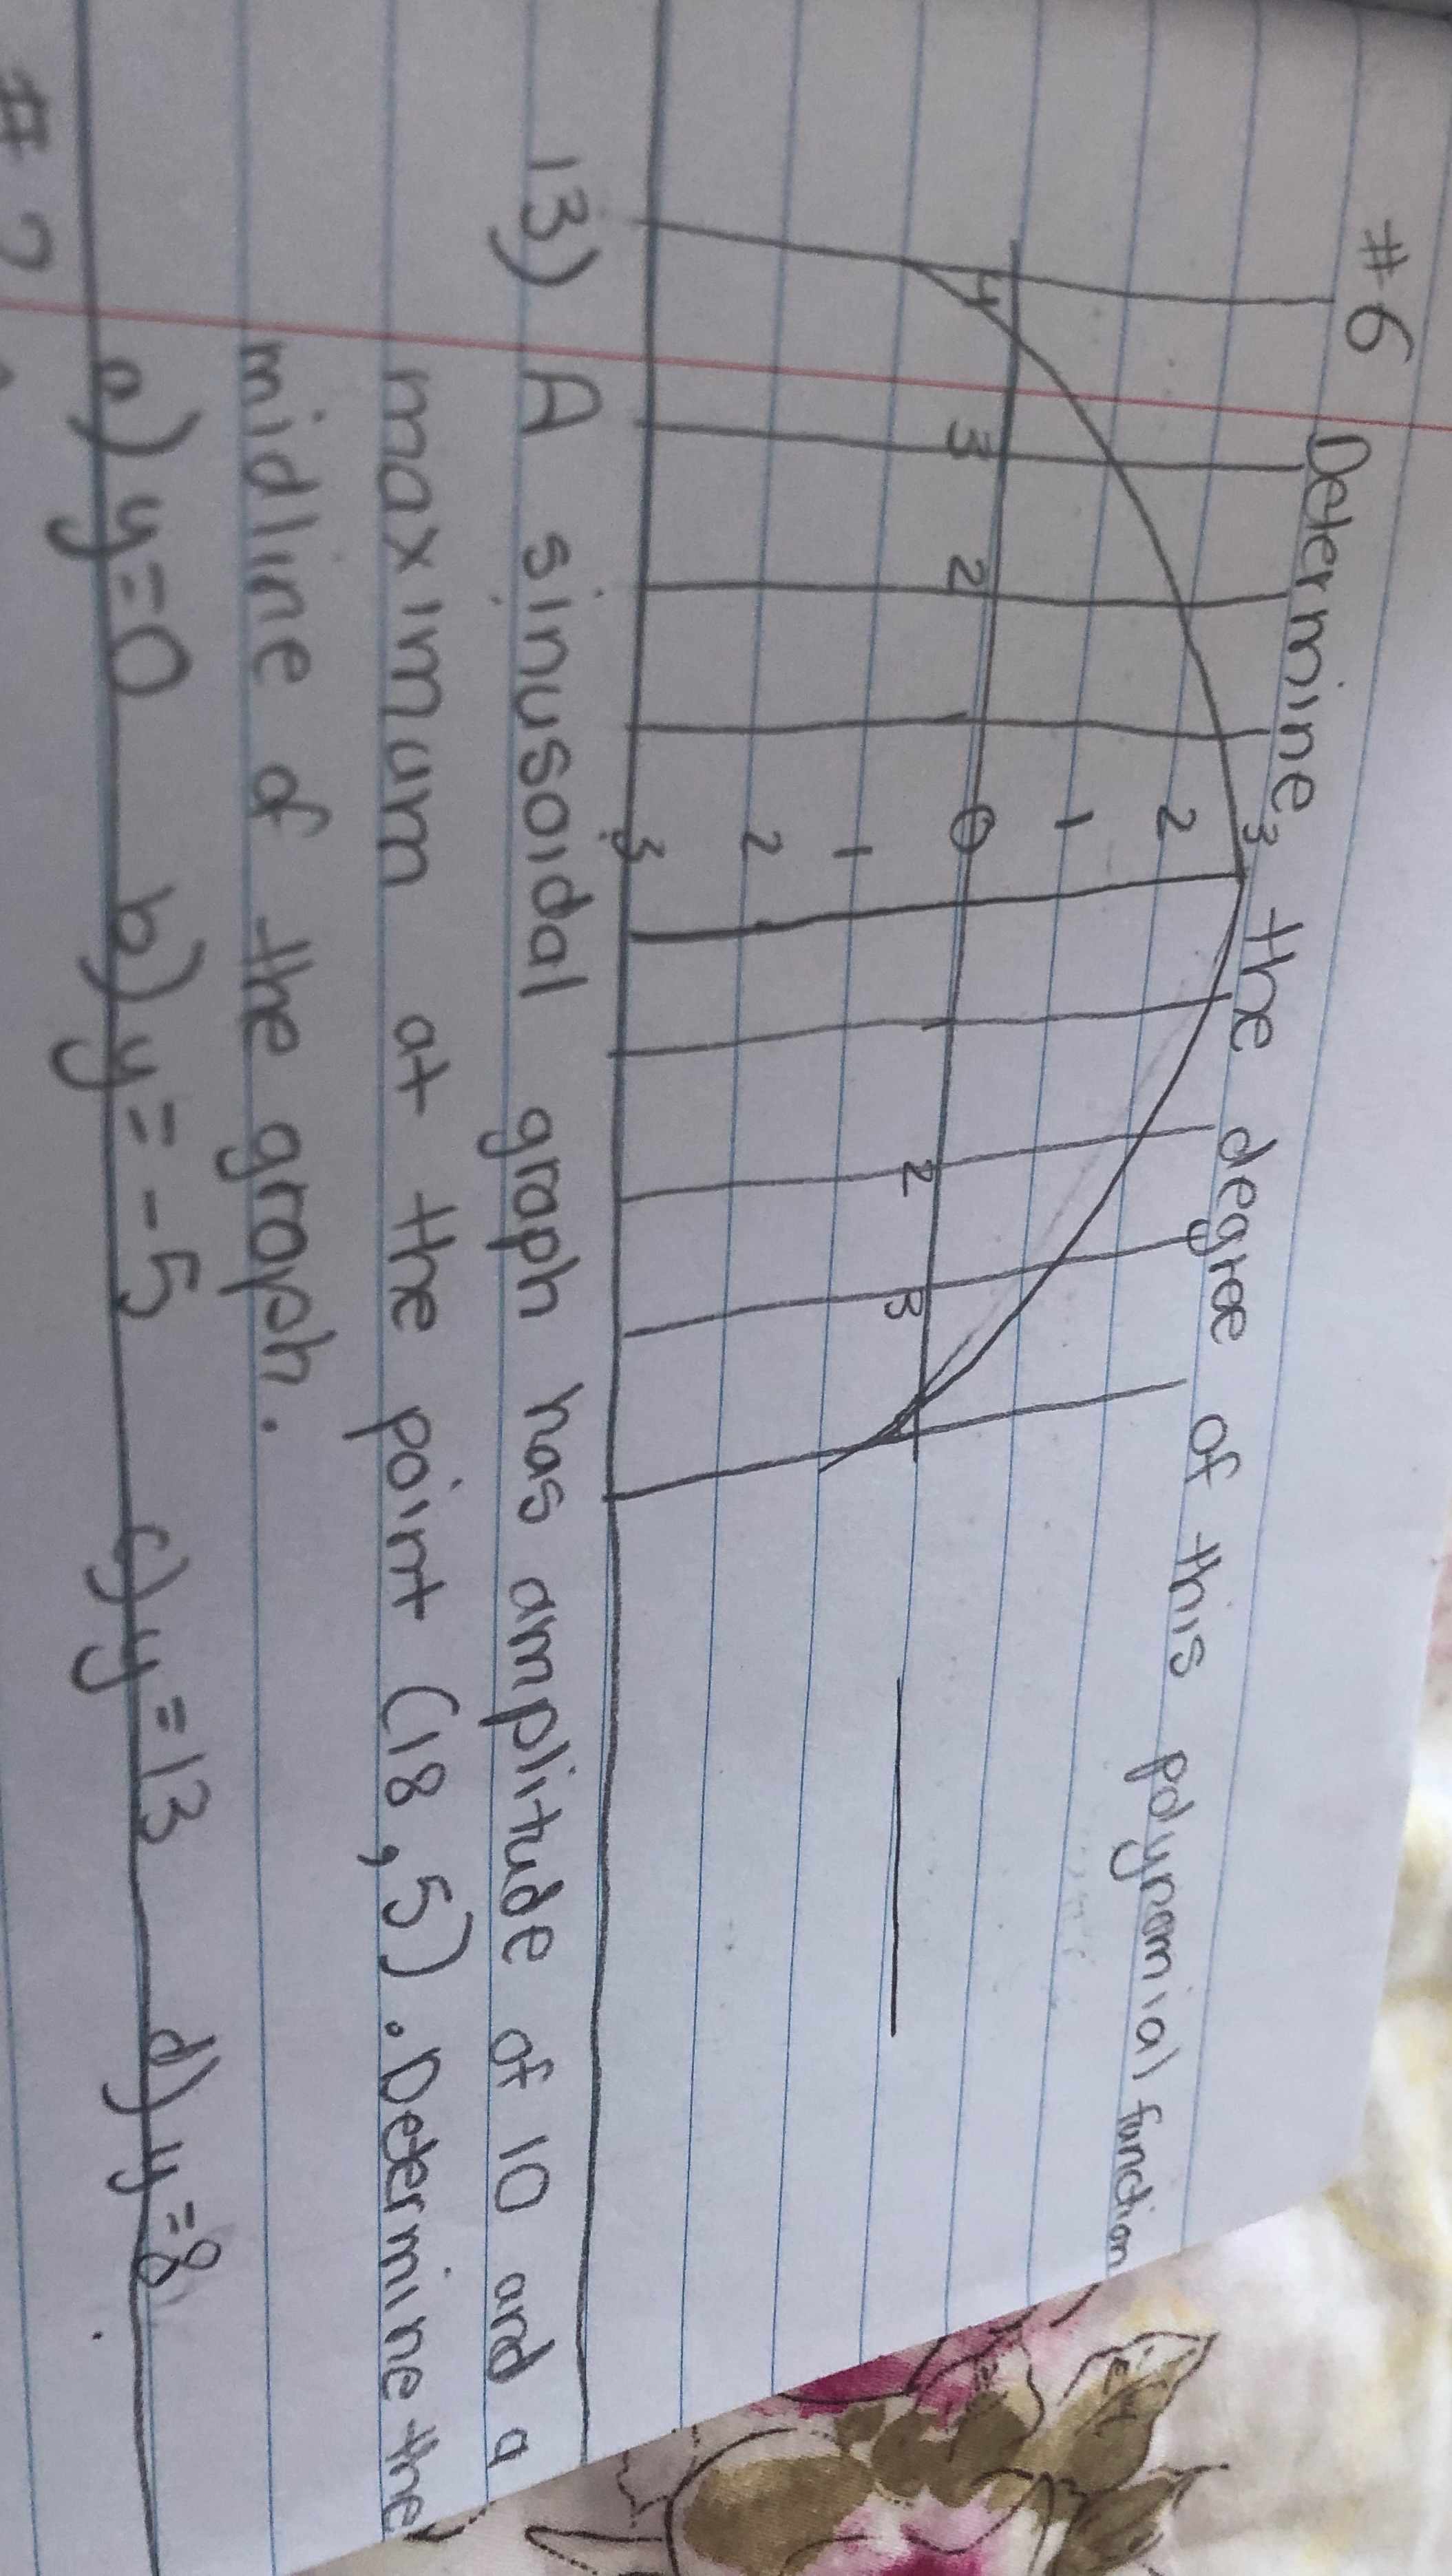 #6 Determine the degree of this polynomial function
3
2
1
4 3 2 0 2 3
1
2
3
13) A sinusoidal graph has amplitude of 10 and a
maximum at the point (18,5). Determine the
midline of the graph.
a) y=0 b) y=-5 c) y=13 d) y=8